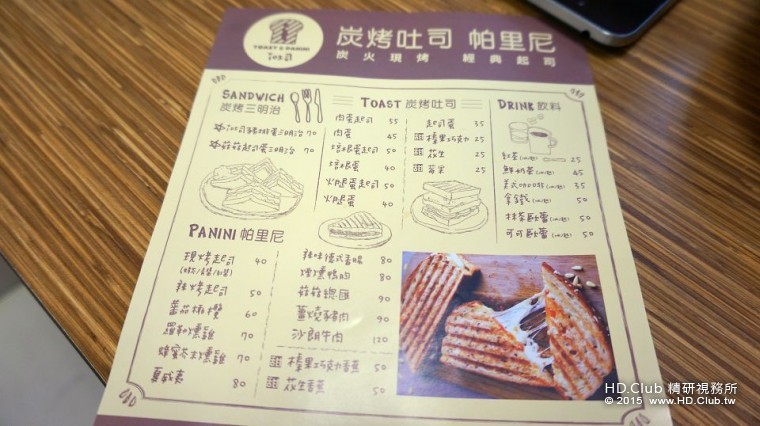 TOAST & PANINI
炭烤吐司 帕里尼
炭火現烤 經典起司
SANDWICH
炭烤三明治
起司豬排蛋三明治 70
菇菇起司蛋三明治 70
TOAST 炭烤吐司
肉蛋起司 55
肉蛋 45
培根蛋起司 50
培根蛋 40
火腿蛋起司 50
火腿蛋 40
起司蛋 35
榛果巧克力 25
花生 25
草莓 25
DRINK 飲料
紅茶 25
鮮奶茶 45
美式咖啡 35
拿鐵 50
抹茶歐蕾 50
可可歐蕾 50
PANINI 帕里尼
現烤起司 40
辣烤起司 50
蕃茄橄欖 60
羅勒燻雞 70
蜂蜜芥末燻雞 70
夏威夷 80
辣味德式香腸 80
煙燻鴨肉 80
菇菇總匯 90
薑燒豬肉 90
沙朗牛肉 110
榛果巧克力香蕉 50
花生香蕉 50
HD.Club 精研視務所
© 2015 www.HD.Club.tw